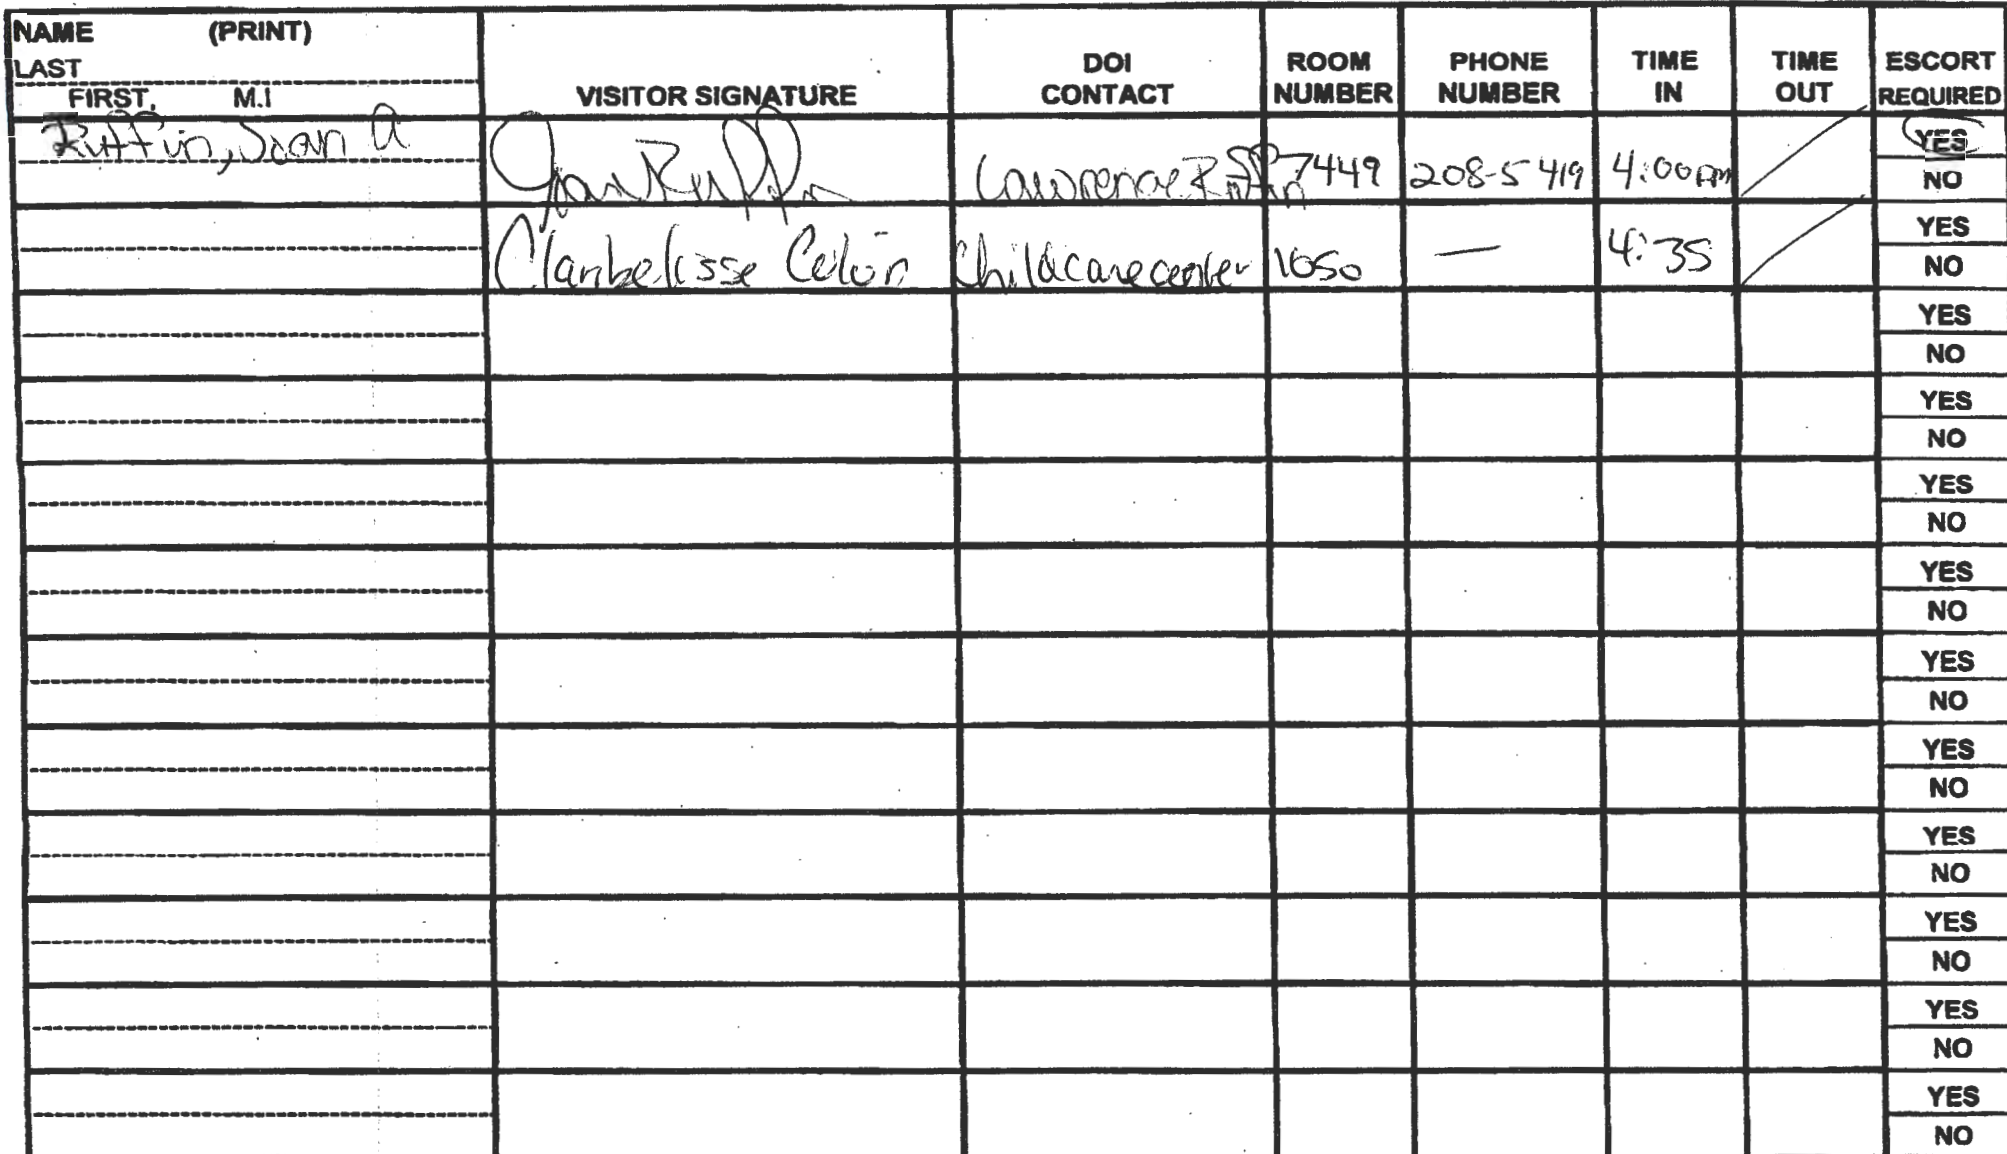 NAME (PRINT)
LAST
FIRST, M.I
VISITOR SIGNATURE
DOI CONTACT
ROOM NUMBER
PHONE NUMBER
TIME IN
TIME OUT
ESCORT REQUIRED
Ruffin, Joan A
Joan Ruffin
Lawrence Ruffin
7449
208-5419
4:00 PM
YES
NO
Claribelisse Colón
Childcare center
1050
—
4:35
YES
NO
YES
NO
YES
NO
YES
NO
YES
NO
YES
NO
YES
NO
YES
NO
YES
NO
YES
NO
YES
NO